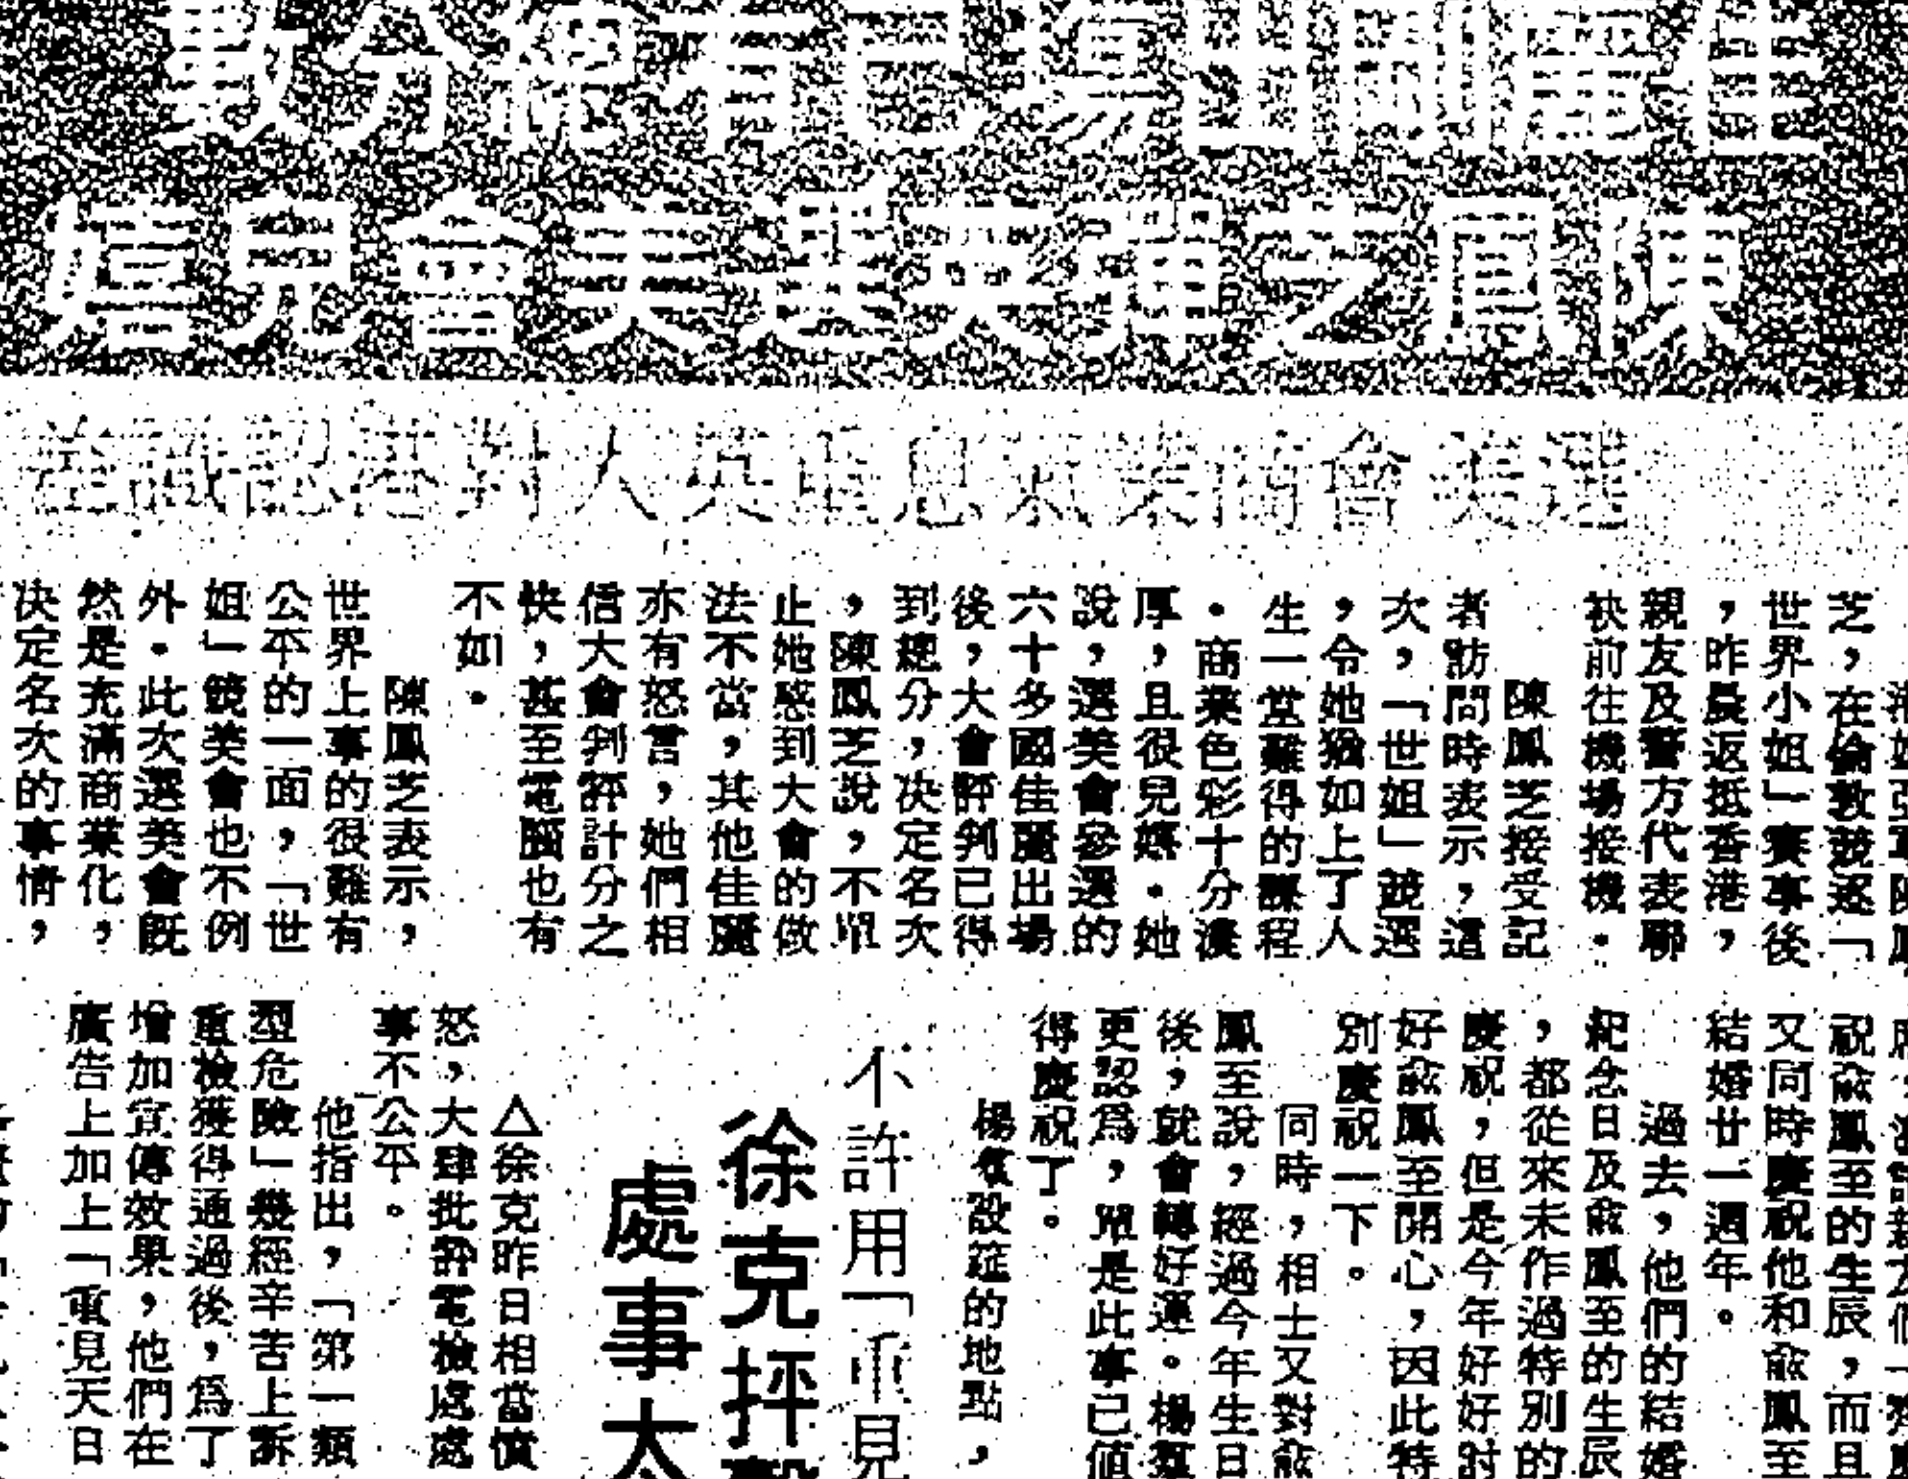 佳麗剛出場已有總分數
陳鳳芝彈英選美會兒嬉
芝，在倫敦競逐「
世界小姐」賽事後
，昨晨返抵香港，
親友及警方代表聯
袂前往機場接機．
陳鳳芝接受記
者訪問時表示，這
次，「世姐」競選
，令她猶如上了人
生一堂難得的課程
．商業色彩十分濃
厚，且很兒嬉．她
說，選美會參選的
六十多國佳麗出場
後，大會評判已得
到總分，决定名次
，陳鳳芝說，不單
止她惑到大會的做
法不當，其他佳麗
亦有怒言，她們相
信大會判評計分之
快，甚至電腦也有
不如．
陳鳳芝表示，
世界上事的很難有
公平的一面，「世
姐」競美會也不例
外．此次選美會既
然是充滿商業化，
决定名次的事情，
祝俞鳳至的生辰，而且
又同時慶祝他和俞鳳至
結婚廿一週年。
過去，他們的結婚
紀念日及俞鳳至的生辰
，都從來未作過特別的
慶祝，但是今年好好討
好俞鳳至開心，因此特
別慶祝一下。
同時，相士又對俞
鳳至說，經過今年生日
後，就會轉好運。楊羣
更認爲，單是此事已値
得慶祝了。
楊羣設筵的地點，
不許用「重見
徐克抨擊
處事太
△徐克昨日相當憤
怒，大肆批評電檢處處
事不公平。
他指出，「第一類
型危險」幾經辛苦上訴
重檢獲得通過後，爲了
增加宣傳效果，他們在
廣告上加上「重見天日